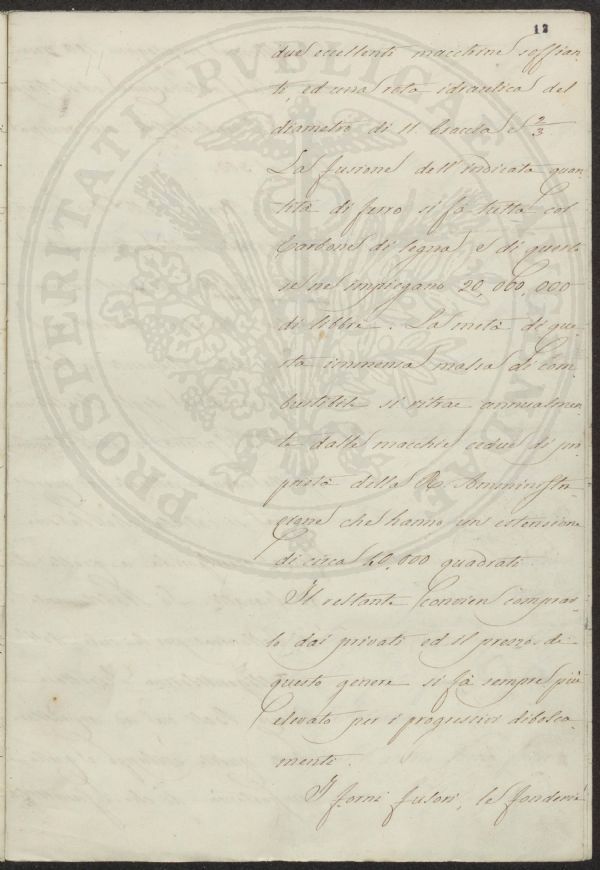 12
due eccellenti macchine soffian-
ti, ed una rota idraulica del
diametro di 11 braccia e 2/3
La fusione dell'indicata quan-
tità di ferro si fà tutta col
Carbone di legna, e di questo
se ne impiegano 20,000,000
di libbre. La metà di que-
sta immensa massa di com-
bustibile si ritrae annualmen-
te dalle macchie cedue di pro-
prietà della R. Amministra-
zione che hanno un estensione
di circa 40,000 quadrati.
Il restante convien comprar-
lo dai privati ed il prezzo di
questo genere si fà sempre più
elevato per i progressivi disbosca-
menti.
I forni fusori, le fonderie
PROSPERITATI PVBLICAE